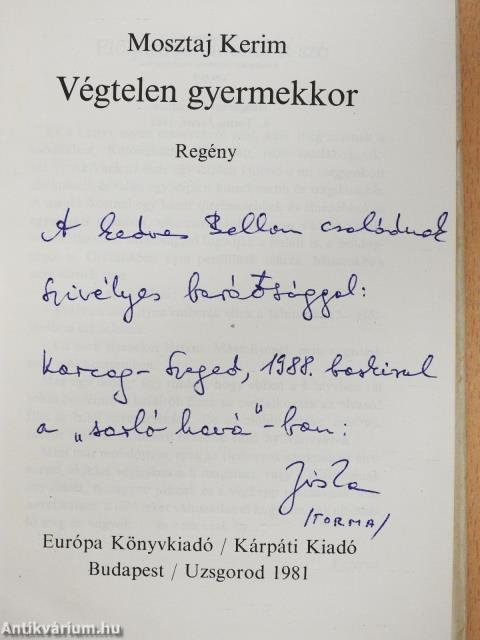 Mosztaj Kerim
Végtelen gyermekkor
Regény
A kedves Bellon családnak
szívélyes barátsággal:
Karcag - Szeged, 1988.
a „sarló hava"-ban:
Jóska
/TORMA/
Európa Könyvkiadó / Kárpáti Kiadó
Budapest / Uzsgorod 1981
Antikvárium.hu